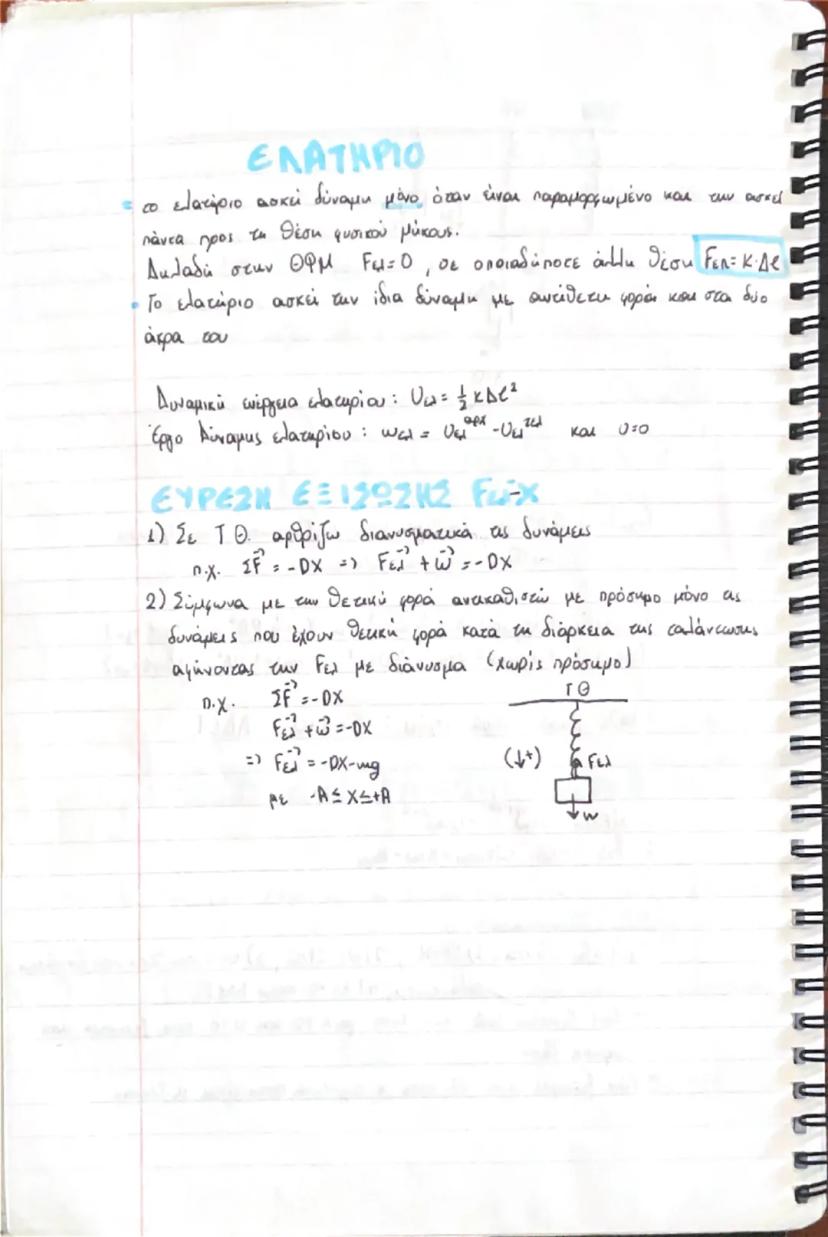 ΕΛΑΤΗΡΙΟ
το ελατήριο ασκεί δύναμη μόνο όταν είναι παραμορφωμένο και την ασκεί
πάντα προς τη θέση φυσικού μήκους.
Δηλαδή στην ΘΦΜ Fελ=0, σε οποιαδήποτε άλλη θέση Fελ=K·Δℓ
• Το ελατήριο ασκεί την ίδια δύναμη με αντίθετη φορά και στα δύο
άκρα του
Δυναμική ενέργεια ελατηρίου: Uελ = ½ KΔℓ²
Έργο δύναμης ελατηρίου: wελ = Uελ^αρχ - Uελ^τελ και U=0
ΕΥΡΕΣΗ ΕΞΙΣΩΣΗΣ Fελ-x
1) Σε Τ.Θ. αρθρίζω διανυσματικά τις δυνάμεις
π.χ. ΣF⃗ = -DX => Fελ⃗ + w⃗ = -DX
2) Σύμφωνα με την θετική φορά αντικαθιστώ με πρόσημο μόνο τις
δυνάμεις που έχουν θετική φορά κατά τη διάρκεια της ταλάντωσης
αφήνοντας την Fελ με διάνυσμα (χωρίς πρόσημο)
π.χ. ΣF⃗ = -DX
Fελ⃗ + w⃗ = -DX
=> Fελ⃗ = -DX-mg
με -A ≤ X ≤ +A
ΤΘ
(↓+)
Fελ
w